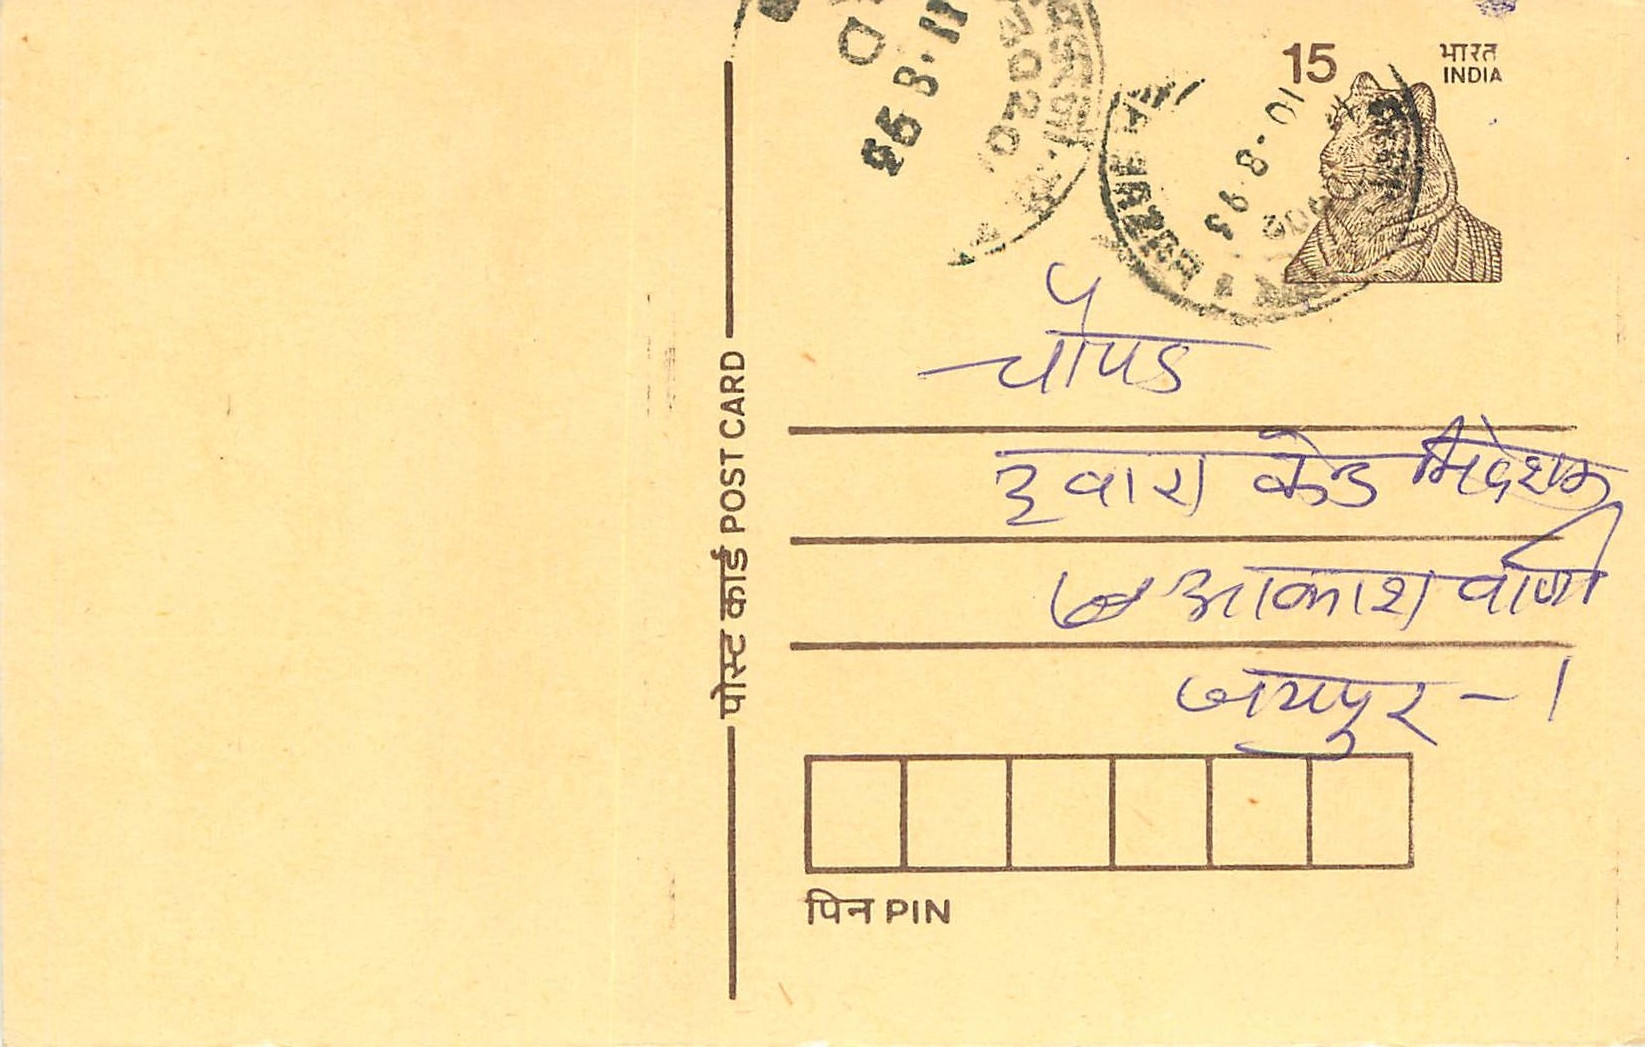 15
भारत
INDIA
11.8.93
10.8.93
पोस्ट कार्ड POST CARD
चौपड
द्वारा केन्द्र निदेशक
आकाशवाणी
जयपुर - 1
पिन PIN